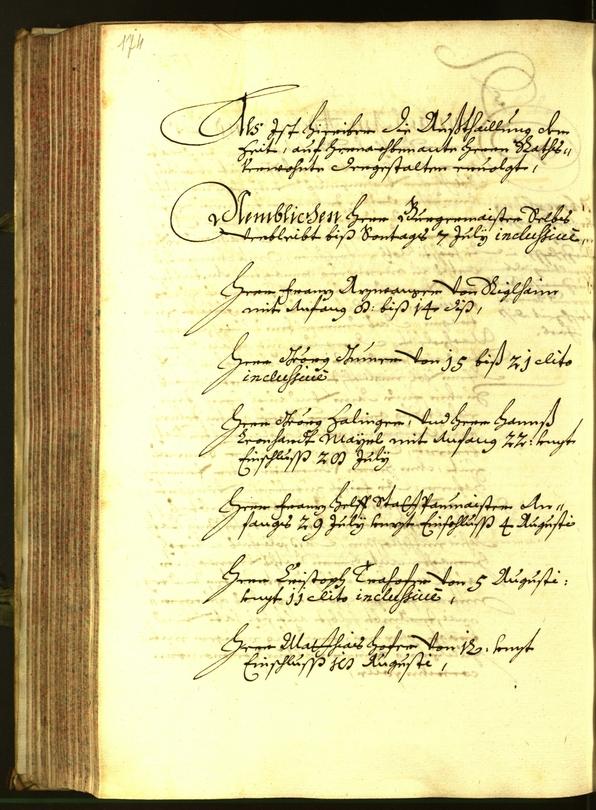 174
Als Ist hierüber die Außthaillung der
Zeit, auf hernachbenante Herrn Raths-
verwohnte dergestalten ervolgt,
Nemblichen Herr Burgermaister Selbs
verbleibt biß Sontags 7 July inclusivè,
Herr Franz von
mit Anfang 8: biß 14 diß,
Herr Geörg von 15 biß 21 dito
inclusivè
Herr Geörg Holinger, und Herr Hannß
Leonhardt Mayel mit Anfang 22: sambt
Einschluss 28 July
Herr Franz Statt Paumaister An-
fangs 29 July sambt Einschluss 4 Augusti
Herr Cristoph von 5 Augusti:
sambt 11 dito inclusivè,
Herr Matthias Hofer von 12. sambt
Einschluss 18 Augusti,